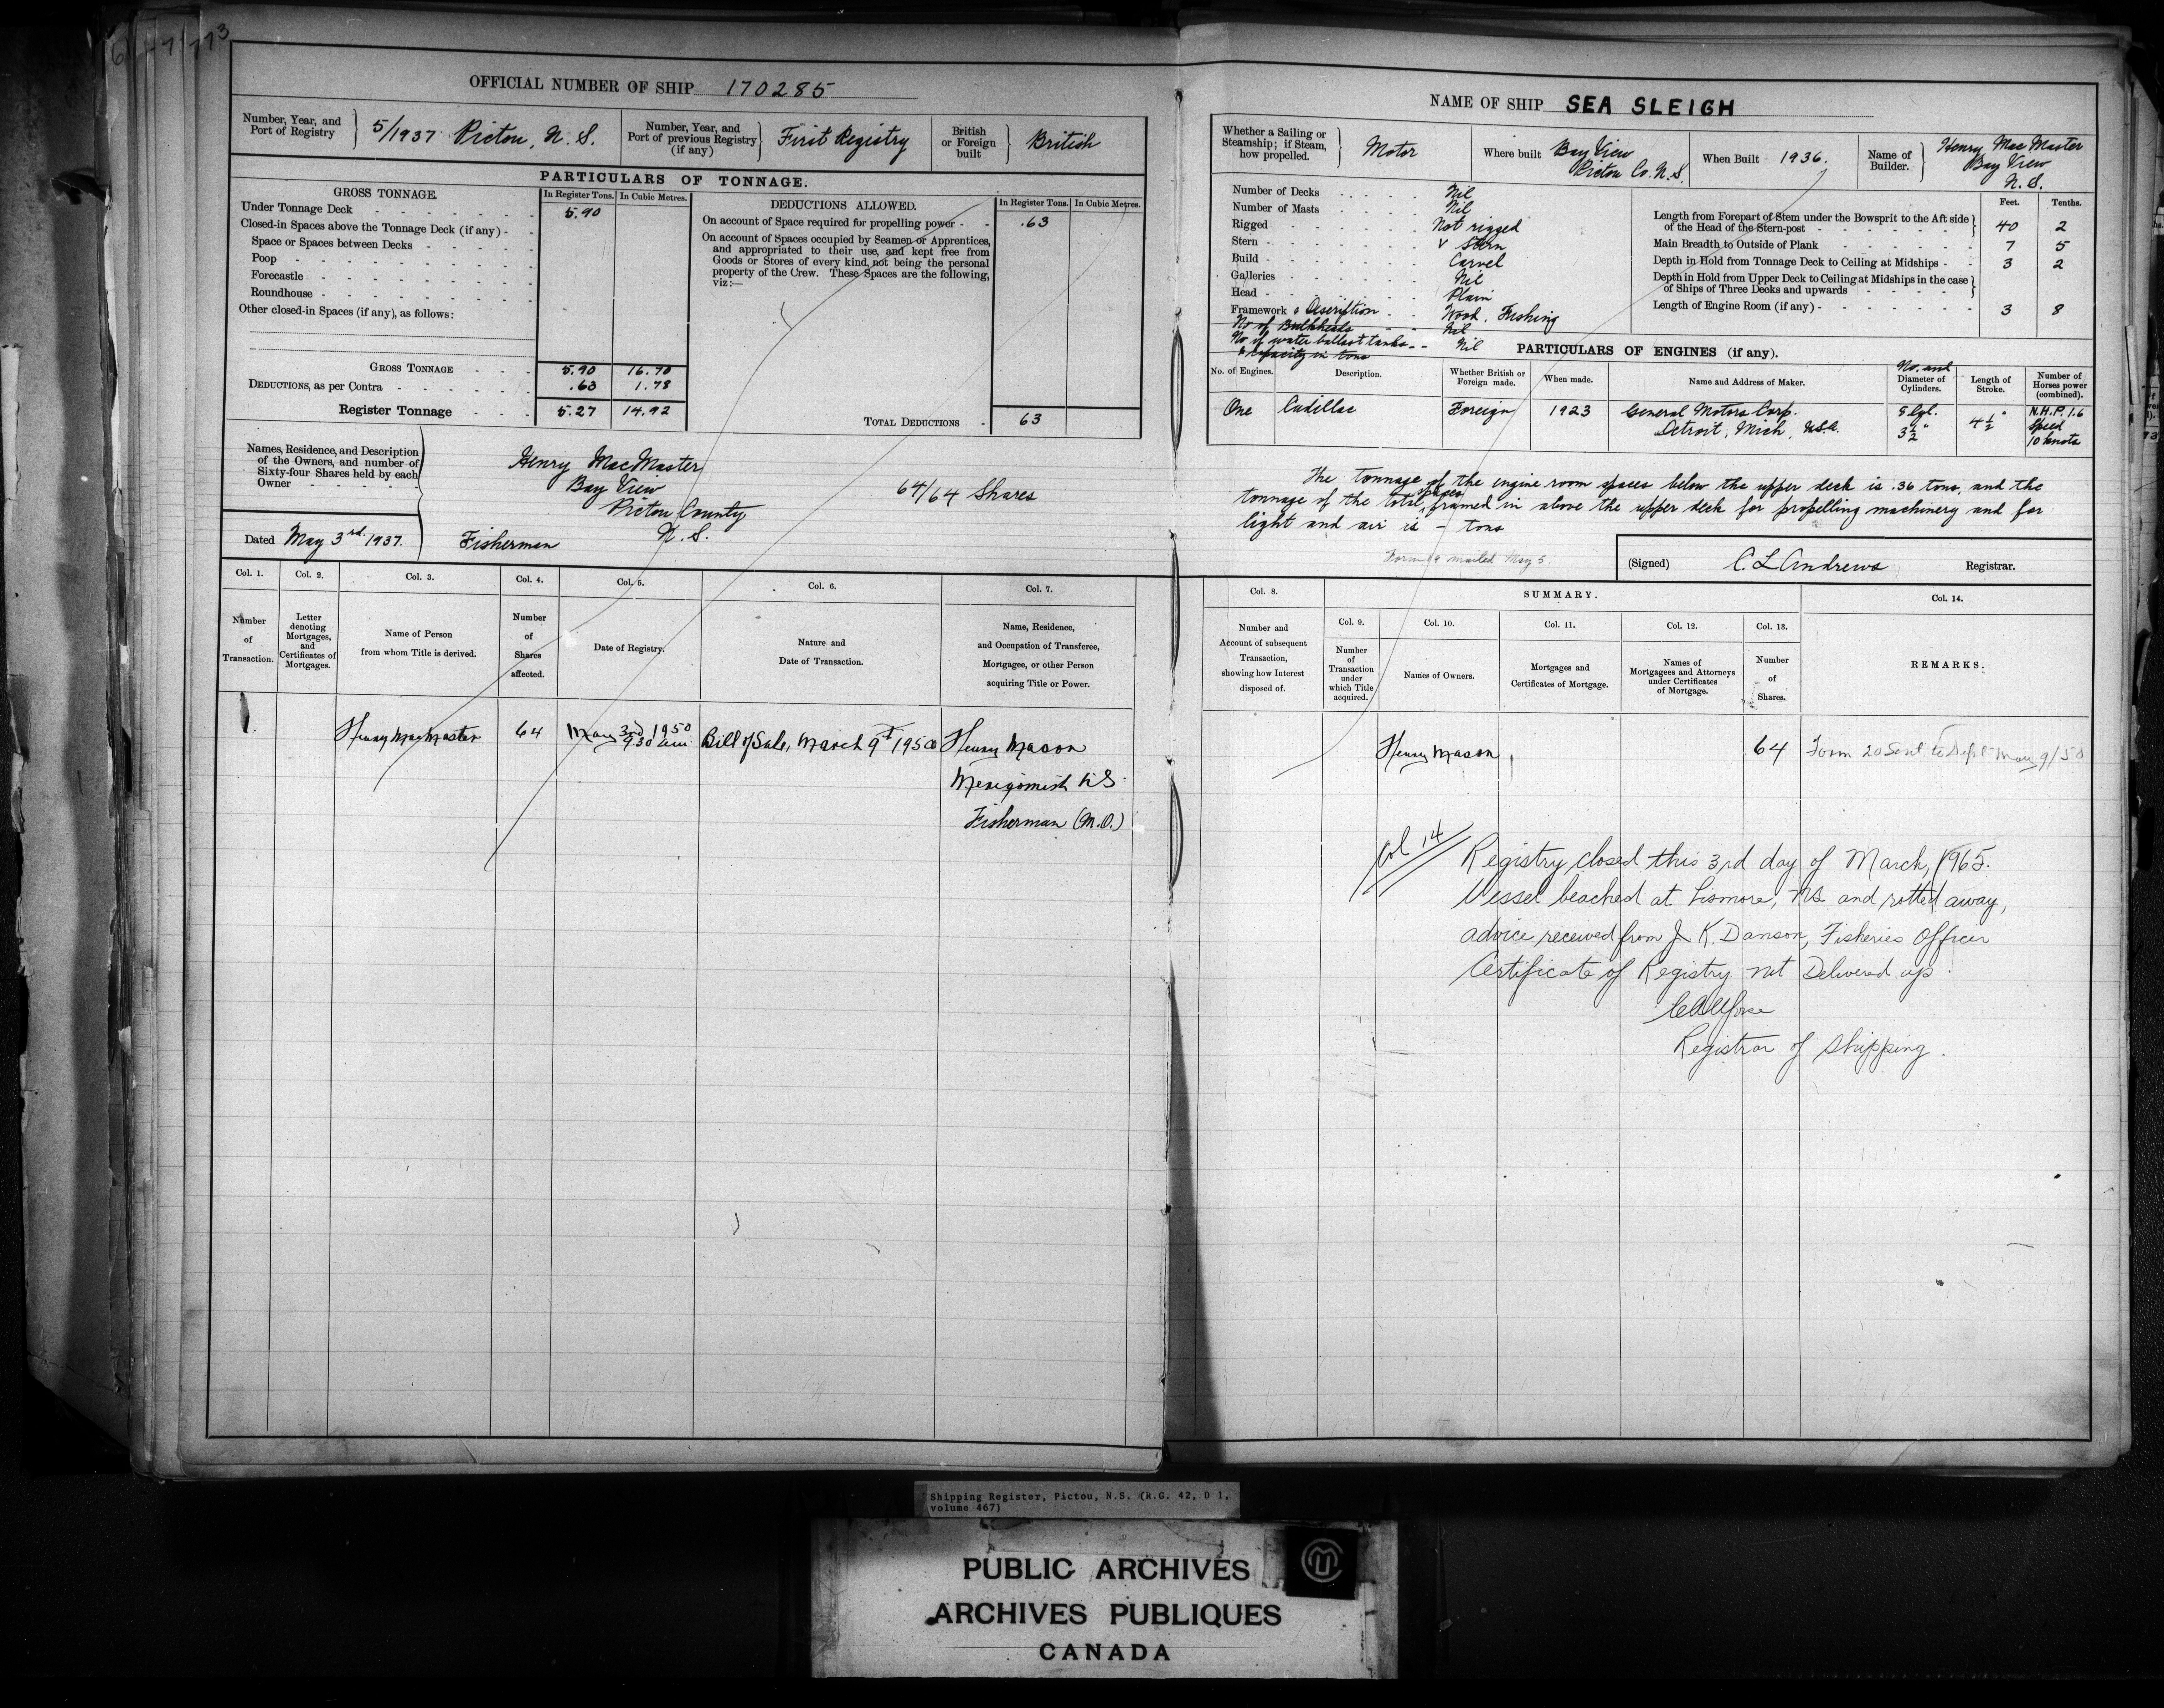 OFFICIAL NUMBER OF SHIP 170285
Number, Year, and Port of Registry
5/1937 Pictou, N. S.
Number, Year, and Port of previous Registry (if any)
First Registry
British or Foreign built
British
PARTICULARS OF TONNAGE.
GROSS TONNAGE.
In Register Tons.
In Cubic Metres.
Under Tonnage Deck 5.90
Closed-in Spaces above the Tonnage Deck (if any) -
Space or Spaces between Decks
Poop
Forecastle
Roundhouse
Other closed-in Spaces (if any), as follows:
GROSS TONNAGE 5.90 16.70
DEDUCTIONS, as per Contra .63 1.78
Register Tonnage 5.27 14.92
DEDUCTIONS ALLOWED.
In Register Tons.
In Cubic Metres.
On account of Space required for propelling power - - .63
On account of Spaces occupied by Seamen or Apprentices,
and appropriated to their use, and kept free from
Goods or Stores of every kind, not being the personal
property of the Crew. These Spaces are the following,
viz:—
TOTAL DEDUCTIONS - 63
Names, Residence, and Description
of the Owners, and number of
Sixty-four Shares held by each
Owner
Henry MacMaster
Bay View
Pictou County
N. S.
64/64 Shares
Dated May 3rd 1937.
Fisherman
Col. 1.
Number of Transaction.
Col. 2.
Letter denoting Mortgages, and Certificates of Mortgages.
Col. 3.
Name of Person from whom Title is derived.
Col. 4.
Number of Shares affected.
Col. 5.
Date of Registry.
Col. 6.
Nature and Date of Transaction.
Col. 7.
Name, Residence, and Occupation of Transferee, Mortgagee, or other Person acquiring Title or Power.
1. Henry MacMaster 64 May 3rd 1950 9.30 a.m. Bill of Sale, March 9th 1950 Henry Mason
Merigomish NS
Fisherman (M.O.)
NAME OF SHIP SEA SLEIGH
Whether a Sailing or Steamship; if Steam, how propelled.
Motor
Where built
Bay View
Pictou Co. N.S.
When Built 1936.
Name of Builder.
Henry MacMaster
Bay View
N. S.
Number of Decks Nil
Number of Masts Nil
Rigged Not rigged
Stern V Stern
Build Carvel
Galleries Nil
Head Plain
Framework & Description Wood, Fishing
No of Bulkheads Nil
No of water ballast tanks Nil
& capacity in tons
Feet. Tenths.
Length from Forepart of Stem under the Bowsprit to the Aft side
of the Head of the Stern-post 40 2
Main Breadth to Outside of Plank 7 5
Depth in Hold from Tonnage Deck to Ceiling at Midships - 3 2
Depth in Hold from Upper Deck to Ceiling at Midships in the case
of Ships of Three Decks and upwards
Length of Engine Room (if any) - 3 8
PARTICULARS OF ENGINES (if any).
No. of Engines.
Description.
Whether British or Foreign made.
When made.
Name and Address of Maker.
No. and
Diameter of Cylinders.
Length of Stroke.
Number of Horses power (combined).
One Cadillac Foreign 1923 General Motors Corp.
Detroit, Mich, U.S.A.
8 Cyl.
3 1/2"
4 1/2"
N.H.P. 1.6
Speed
10 knots
The tonnage of the engine room spaces below the upper deck is .36 tons, and the
tonnage of the total spaces framed in above the upper deck for propelling machinery and for
light and air is - tons
Form 9 mailed May 5
(Signed) C. L. Andrews Registrar.
Col. 8.
Number and Account of subsequent Transaction, showing how Interest disposed of.
SUMMARY.
Col. 9.
Number of Transaction under which Title acquired.
Col. 10.
Names of Owners.
Col. 11.
Mortgages and Certificates of Mortgage.
Col. 12.
Names of Mortgagees and Attorneys under Certificates of Mortgage.
Col. 13.
Number of Shares.
Col. 14.
REMARKS.
Henry Mason 64 Form 20 Sent to Dept May 9/50
Col 14
Registry closed this 3rd day of March, 1965.
Vessel beached at Lismore, NS and rotted away,
advice received from J K. Danson, Fisheries Officer
Certificate of Registry not Delivered up.
Registrar of Shipping.
Shipping Register, Pictou, N.S. (R.G. 42, D 1,
volume 467)
PUBLIC ARCHIVES
ARCHIVES PUBLIQUES
CANADA